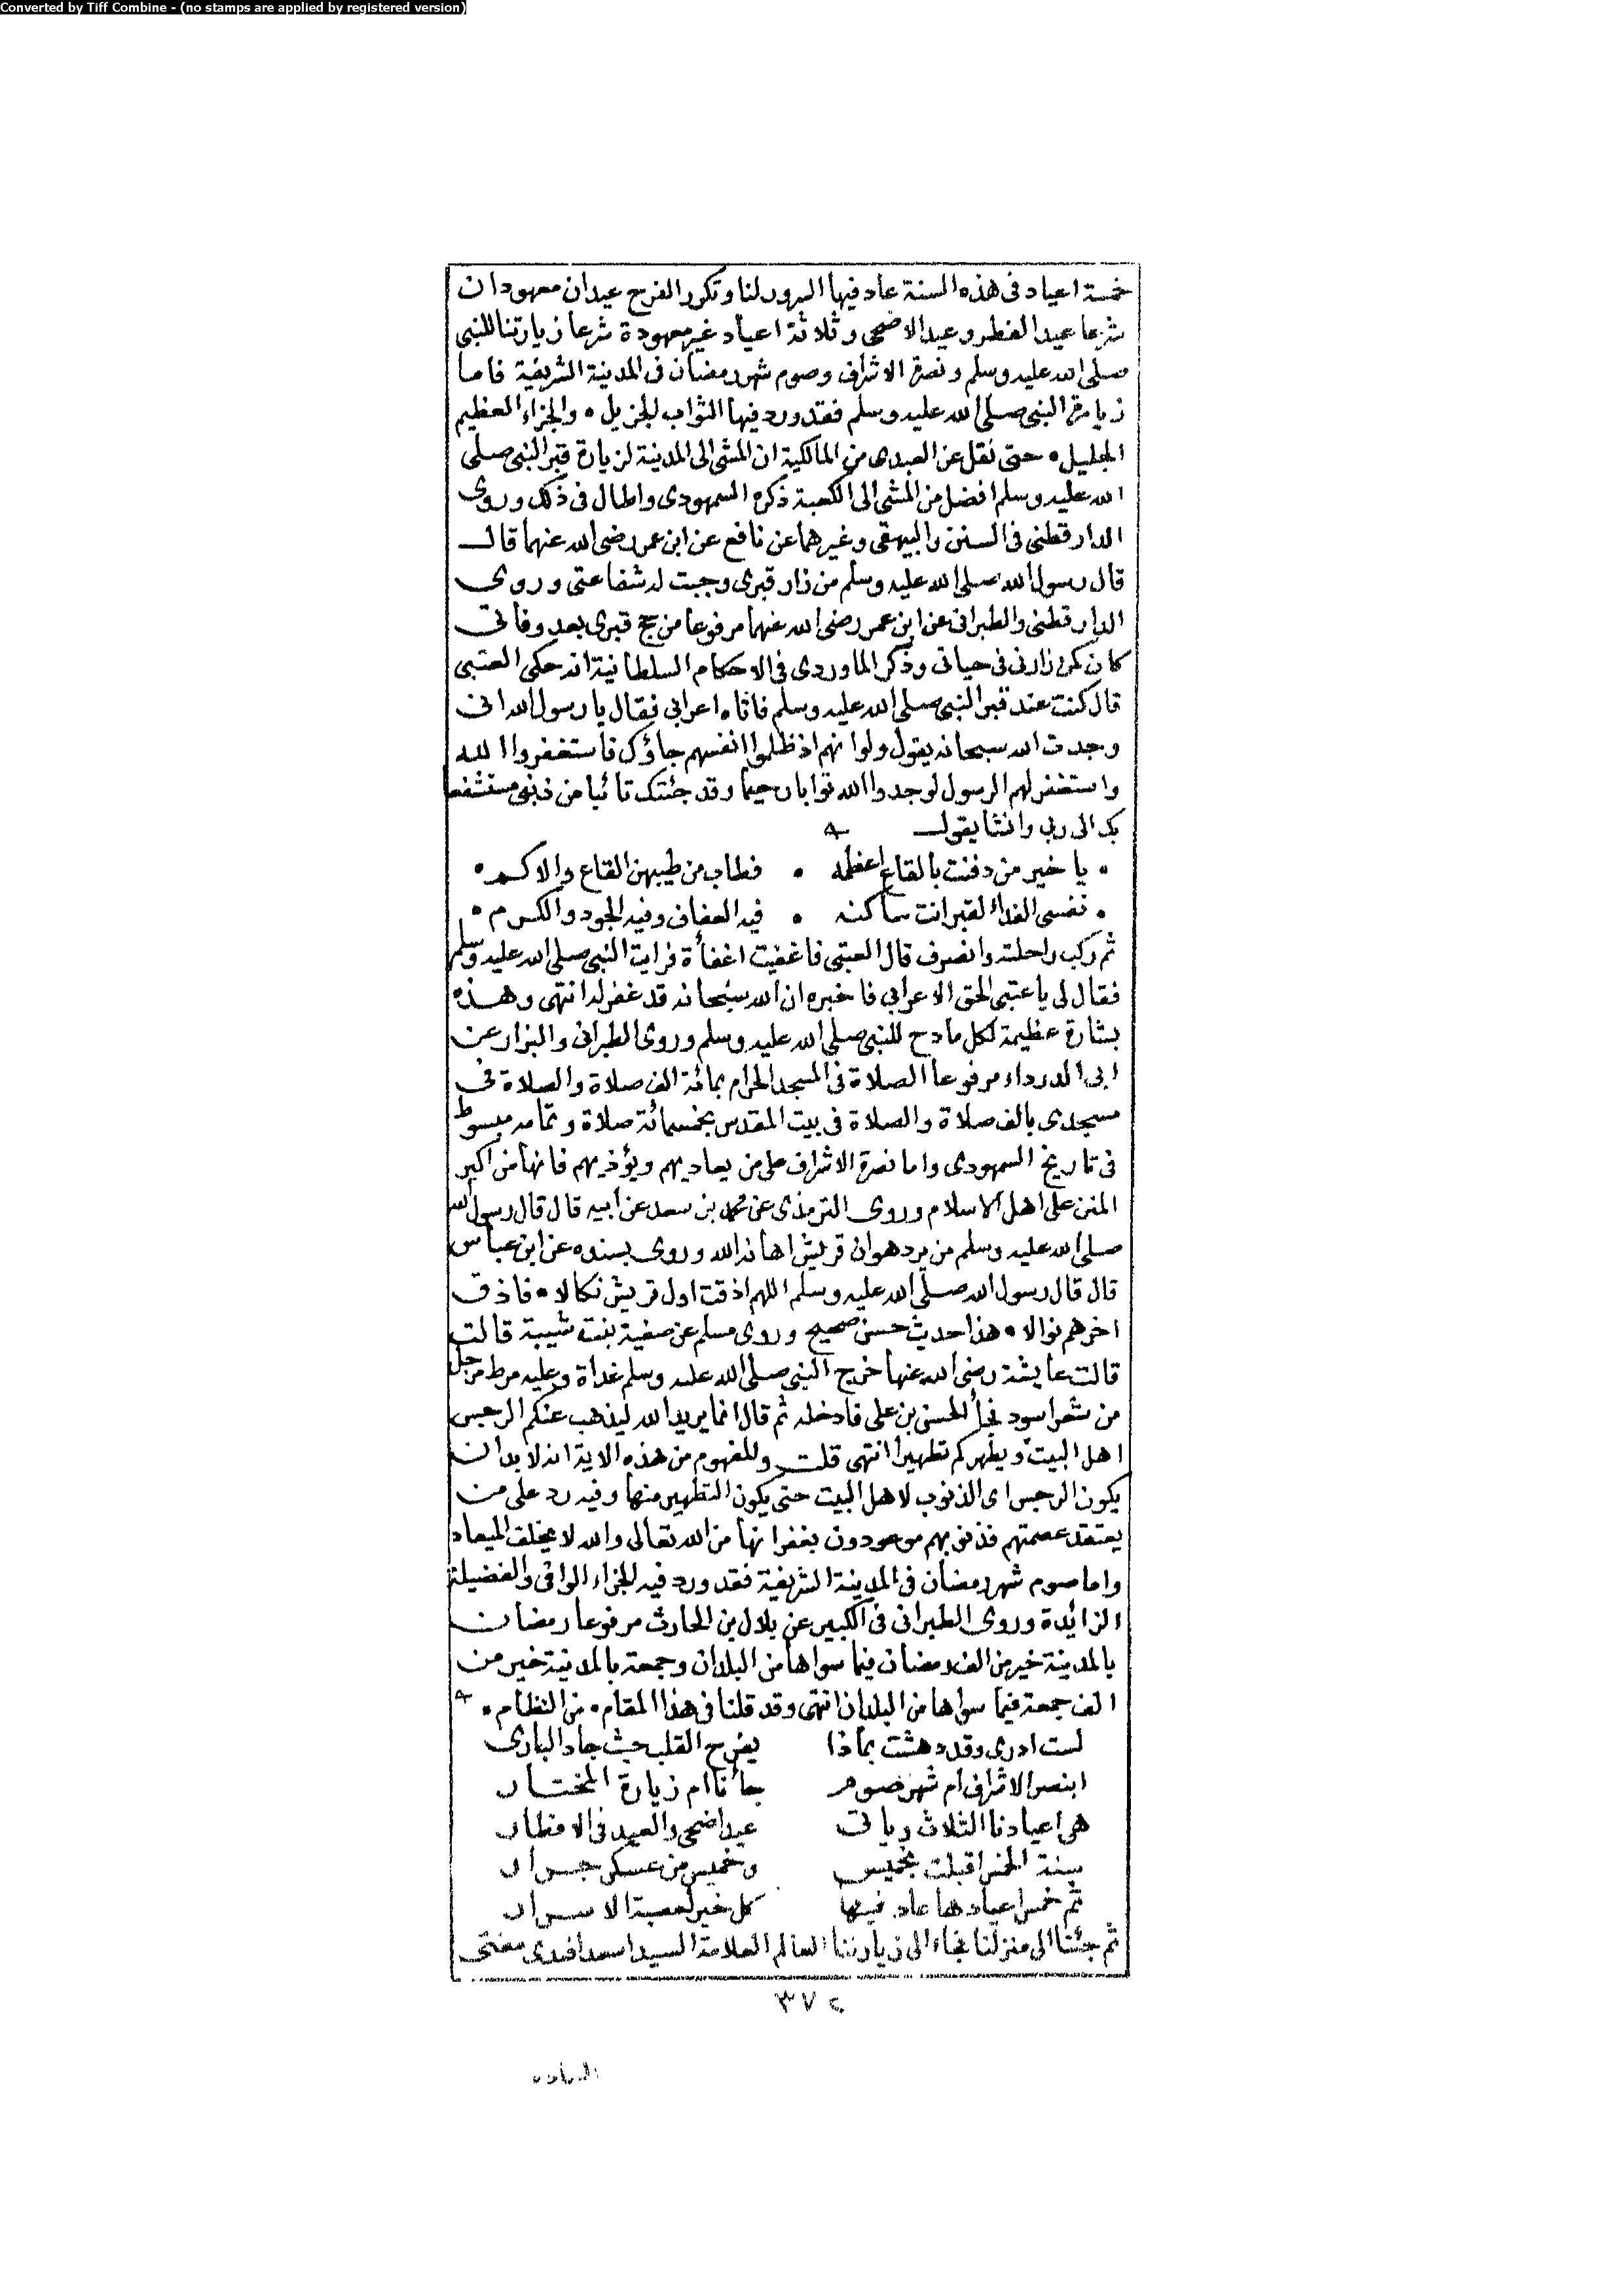 Converted by Tiff Combine - (no stamps are applied by registered version)
خمسة اعياد فى هذه السنة عاد فيها السرور لنا وتكرر الفرح عيدان معهودان
شرعا عيد الفطر وعيد الاضحى وثلاثة اعياد غير معهودة شرعا زيارتنا للنبى
صلى الله عليه وسلم ونصرة الاشراف وصوم شهر رمضان فى المدينة الشريفة فاما
زيارة النبى صلى الله عليه وسلم فقد ورد فيها الثواب الجزيل • والجزاء العظيم
الجليل • حتى نقل عن العبدى من المالكية ان المشى الى المدينة لزيارة قبر النبى صلى
الله عليه وسلم افضل من المشى الى الكعبة ذكره السمهودى واطال فى ذلك وروى
الدارقطنى فى السنن والبيهقى وغيرهما عن نافع عن ابن عمر رضى الله عنهما قال
قال رسول الله صلى الله عليه وسلم من زار قبرى وجبت له شفاعتى وروى
الدارقطنى والطبرانى عن ابن عمر رضى الله عنهما مرفوعا من حج قبرى بعد وفاتى
كان كمن زارنى فى حياتى وذكر الماوردى فى الاحكام السلطانية انه حكى العتبى
قال كنت عند قبر النبى صلى الله عليه وسلم فاتاه اعرابى فقال يا رسول الله انى
وجدت الله سبحانه يقول ولوا نهم اذ ظلموا انفسهم جاؤك فاستغفروا الله
واستغفر لهم الرسول لوجدوا الله توابا رحيما وقد جئتك تائبا من ذنبى مستشفعا
بك الى ربى وانشا يقول
• يا خير من دفنت بالقاع اعظمه • فطاب من طيبهن القاع والاكم •
• نفسى الفداء لقبر انت ساكنه • فيه العفاف وفيه الجود والكرم •
ثم ركب راحلته وانصرف قال العتبى فاغفيت اغفأة فرايت النبى صلى الله عليه وسلم
فقال لى يا عتبى الحق الاعرابى فاخبره ان الله سبحانه قد غفر له انتهى وهذه
بشارة عظيمة لكل مادح للنبى صلى الله عليه وسلم وروى الطبرانى والبزار عن
ابى الدرداء مرفوعا الصلاة فى المسجد الحرام بمائة الف صلاة والصلاة فى
مسجدى بالف صلاة والصلاة فى بيت المقدس بخمسمائة صلاة وتمامه مبسوط
فى تاريخ السمهودى واما نصرة الاشراف على من يعاديهم ويؤذيهم فانها من اكبر
المنن على اهل الاسلام وروى الترمذى عن محمد بن سعد عن أبيه قال قال رسول الله
صلى الله عليه وسلم من يرد هوان قريش اهانه الله وروى بسنده عن ابن عباس
قال قال رسول الله صلى الله عليه وسلم اللهم اذقت اول قريش نكالا • فاذق
اخرهم نوالا • هذا حديث حسن صحيح وروى مسلم عن صفية بنت شيبة قالت
قالت عايشة رضى الله عنها خرج النبى صلى الله عليه وسلم غداة وعليه مرط مرجل
من شعر اسود فجأ الحسن بن على فادخله ثم قال انما يريد الله ليذهب عنكم الرجس
اهل البيت ويطهركم تطهيرا انتهى قلت وللمفهوم من هذه الاية انه لا بد ان
يكون الرجس اى الذنوب لاهل البيت حتى يكون التطهير منها وفيه رد على من
يعتقد عصمتهم فذنوبهم موعودون بغفرانها من الله تعالى والله لا يخلف الميعاد
واما صوم شهر رمضان فى المدينة الشريفة فقد ورد فيه الجزاء الوافى والفضيلة
الزائدة وروى الطبرانى فى الكبير عن بلال بن الحارث مرفوعا رمضان
بالمدينة خير من الف رمضان فيما سواها من البلدان وجمعة بالمدينة خير من
الف جمعة فيما سواها من البلدان انتهى وقد قلنا فى هذا المقام • من النظام •
لست ادرى وقد دهشت بماذا يفرح القلب حيث جاد البارى
ابنصر الاشراف ام شهر صوم جأنا ام زيارة المختار
هى اعيادنا الثلاث وياتى عيد اضحى والعيد فى الافطار
سنة الخمس اقبلت بخميس وخميس من عسكر جرار
ثم خمس اعيادها عاد فيها كل خير لعصبة الاسرار
ثم جئنا الى منزلنا فجاء الى زيارتنا العالم العلامة السيد اسعد افندى مفتى
٣٧٢